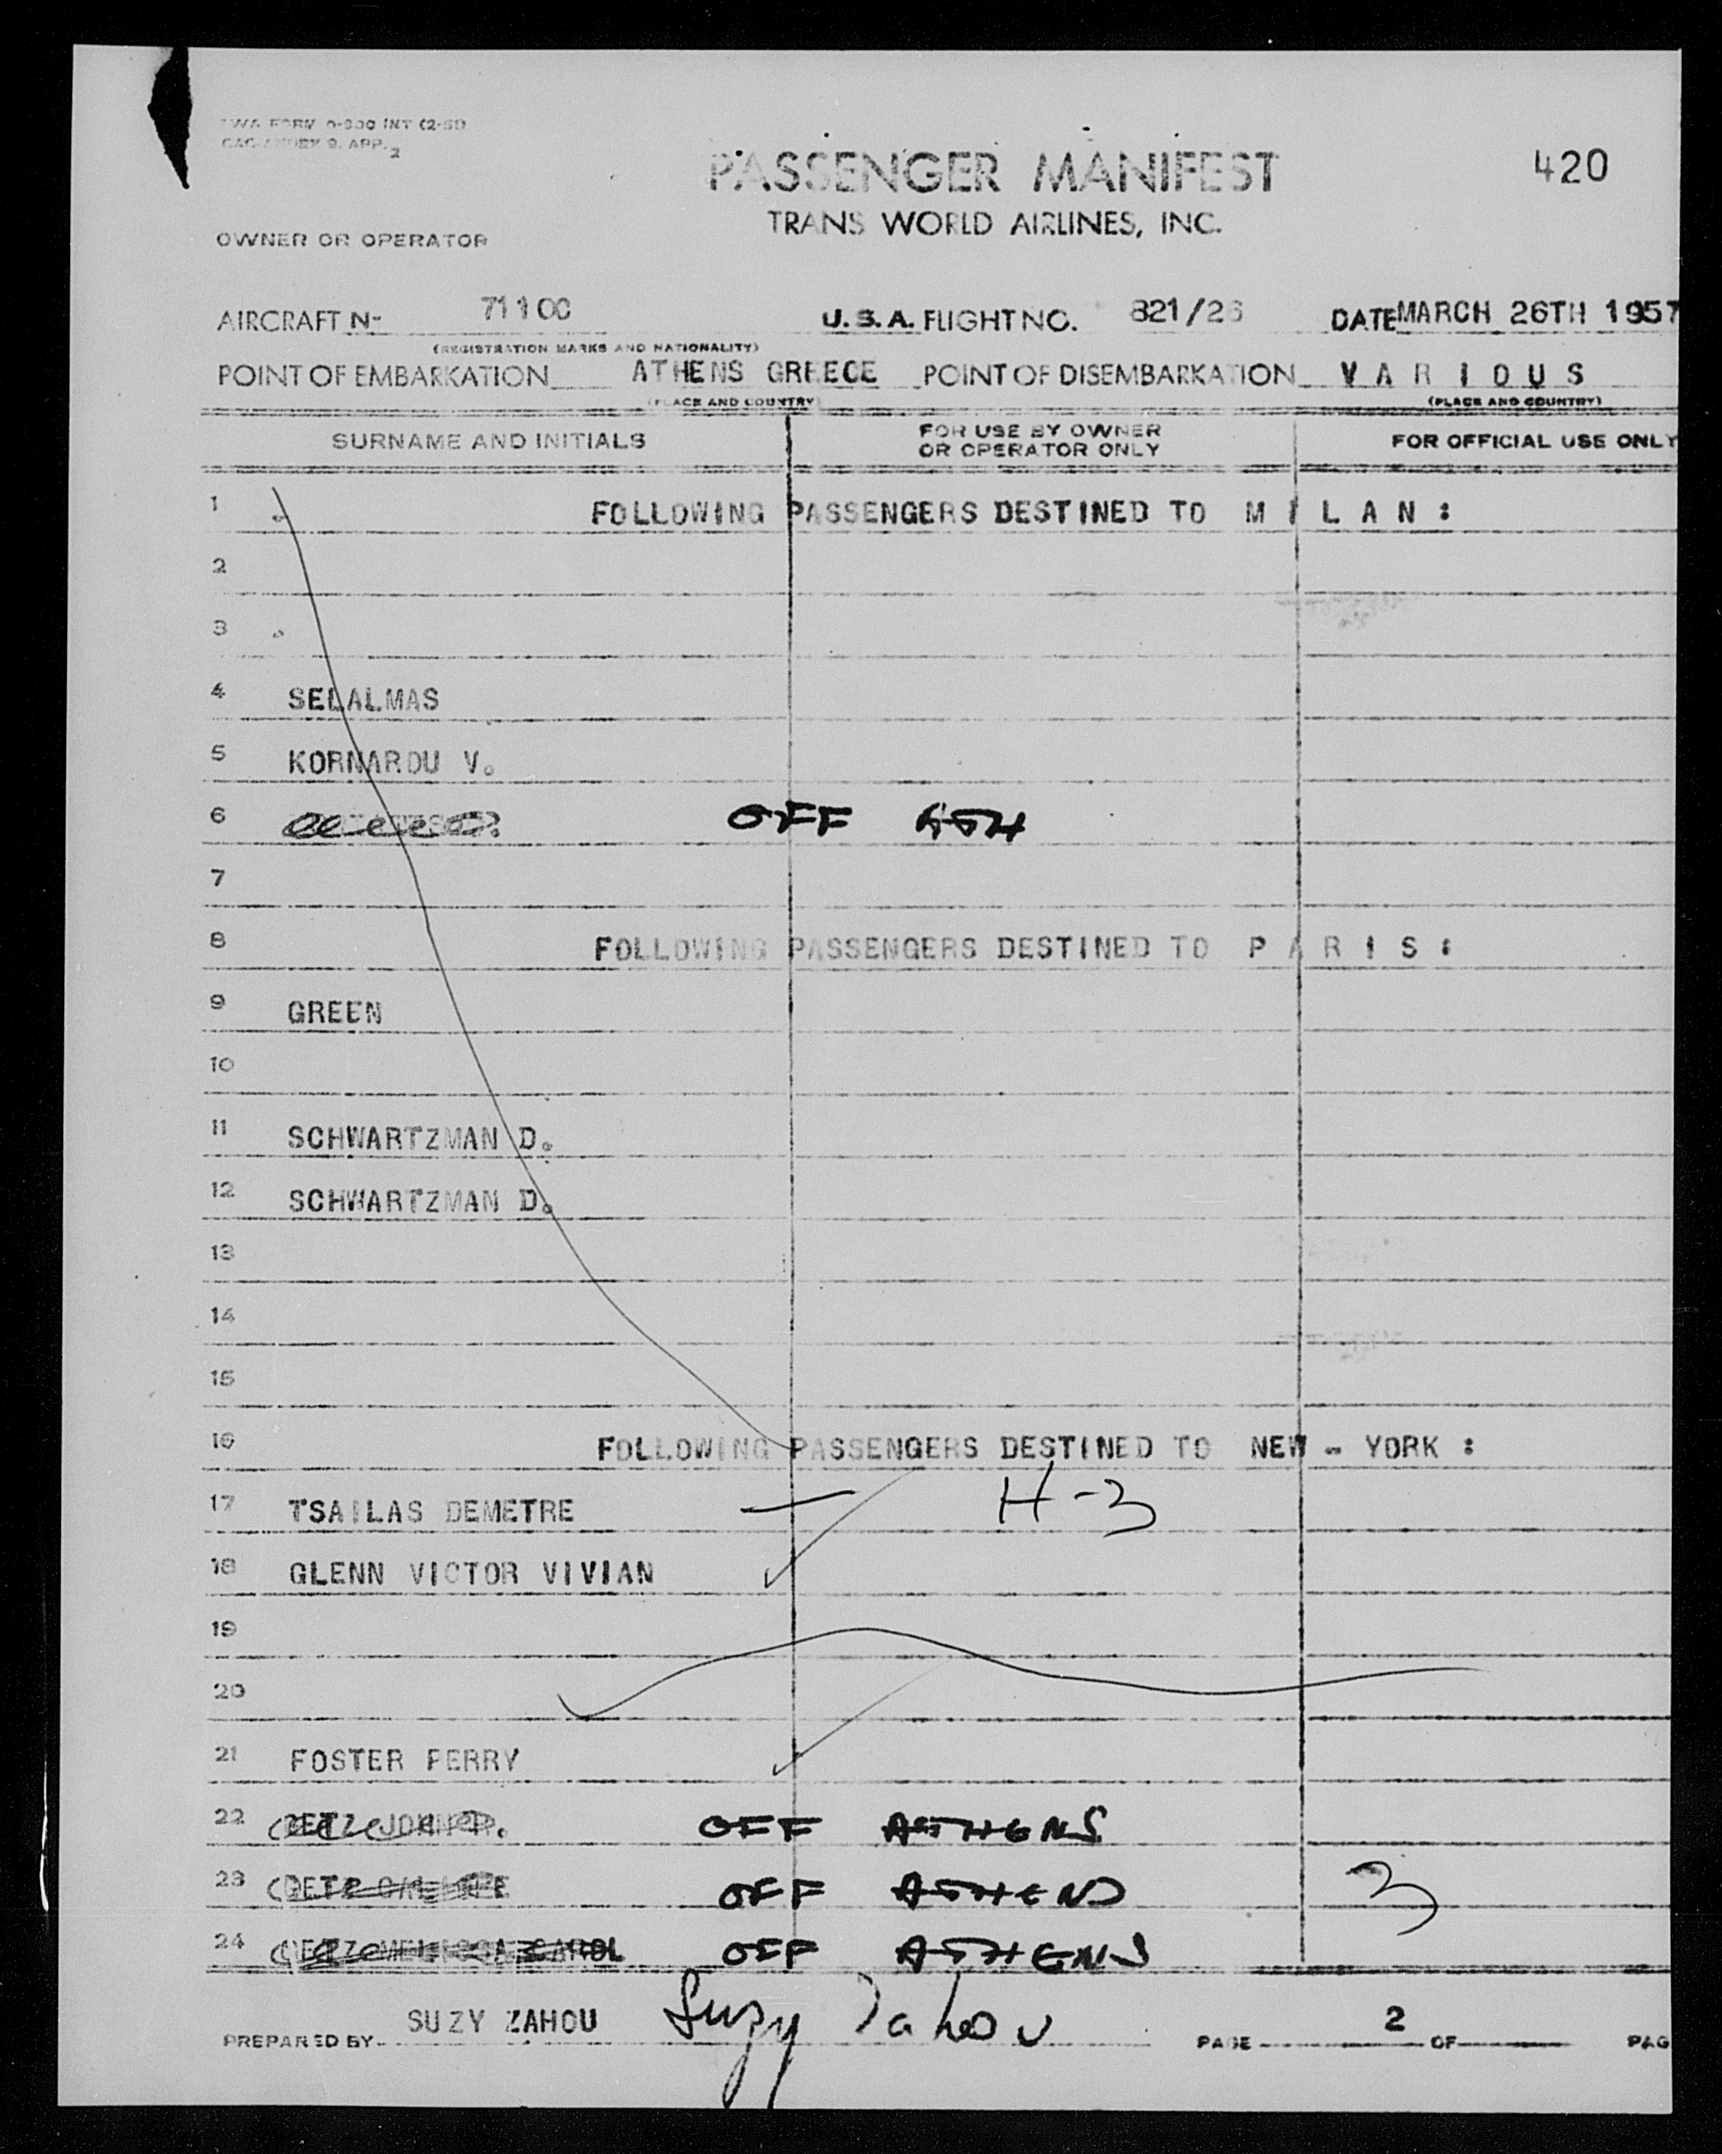 TWA FORM 0-800 INT (2-51)
APP. 2
PASSENGER MANIFEST
420
TRANS WORLD AIRLINES, INC.
OWNER OR OPERATOR
AIRCRAFT Nº 7110C U.S.A. FLIGHT NO. 821/26 DATE MARCH 26TH 1957
(REGISTRATION MARKS AND NATIONALITY)
POINT OF EMBARKATION ATHENS GREECE POINT OF DISEMBARKATION V A R I O U S
(PLACE AND COUNTRY) (PLACE AND COUNTRY)
SURNAME AND INITIALS FOR USE BY OWNER OR OPERATOR ONLY FOR OFFICIAL USE ONLY
1 FOLLOWING PASSENGERS DESTINED TO M I L A N :
2
3
4 SELALMAS
5 KORNAROU V.
6 OFF ATH
7
8 FOLLOWING PASSENGERS DESTINED TO P A R I S :
9 GREEN
10
11 SCHWARTZMAN D.
12 SCHWARTZMAN D.
13
14
15
16 FOLLOWING PASSENGERS DESTINED TO NEW - YORK :
17 TSAILAS DEMETRE — H-3
18 GLENN VICTOR VIVIAN
19
20
21 FOSTER PERRY
22 OFF ATHENS
23 OFF ATHENS 3
24 CAROL OFF ATHENS
PREPARED BY SUZY ZAHOU Suzy Zahou PAGE 2 OF PAG